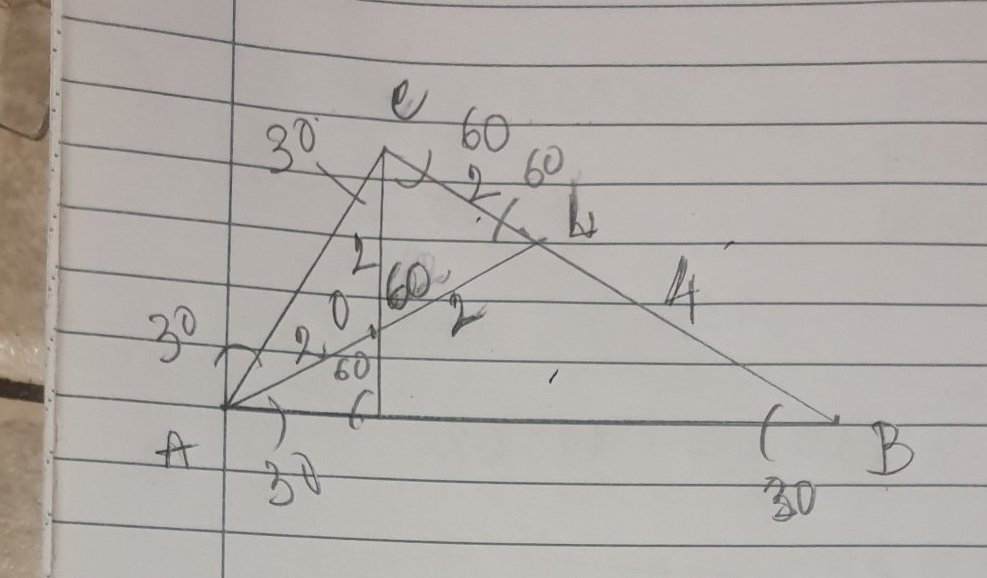 C
60
30
60
2
L
2
4
60
0
2
30
2
60
A
B
30
30